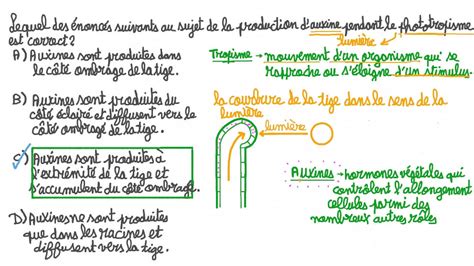 Lequel des énoncés suivants au sujet de la production d'auxine pendant le phototropisme
est correct?
lumière
A) Auxines sont produites dans
le côté ombragé de la tige.
B) Auxines sont produites du
côté éclairé et diffusent vers le
côté ombragé de la tige.
C) Auxines sont produites à
l'extrémité de la tige et
s'accumulent du côté ombragé.
D) Auxines ne sont produites
que dans les racines et
diffusent vers la tige.
Tropisme → mouvement d'un organisme qui se
rapproche ou s'éloigne d'un stimulus.
la courbure de la tige dans le sens de la
lumière
lumière
Auxines → hormones végétales qui
contrôlent l'allongement
cellules parmi des
nombreux autres rôles